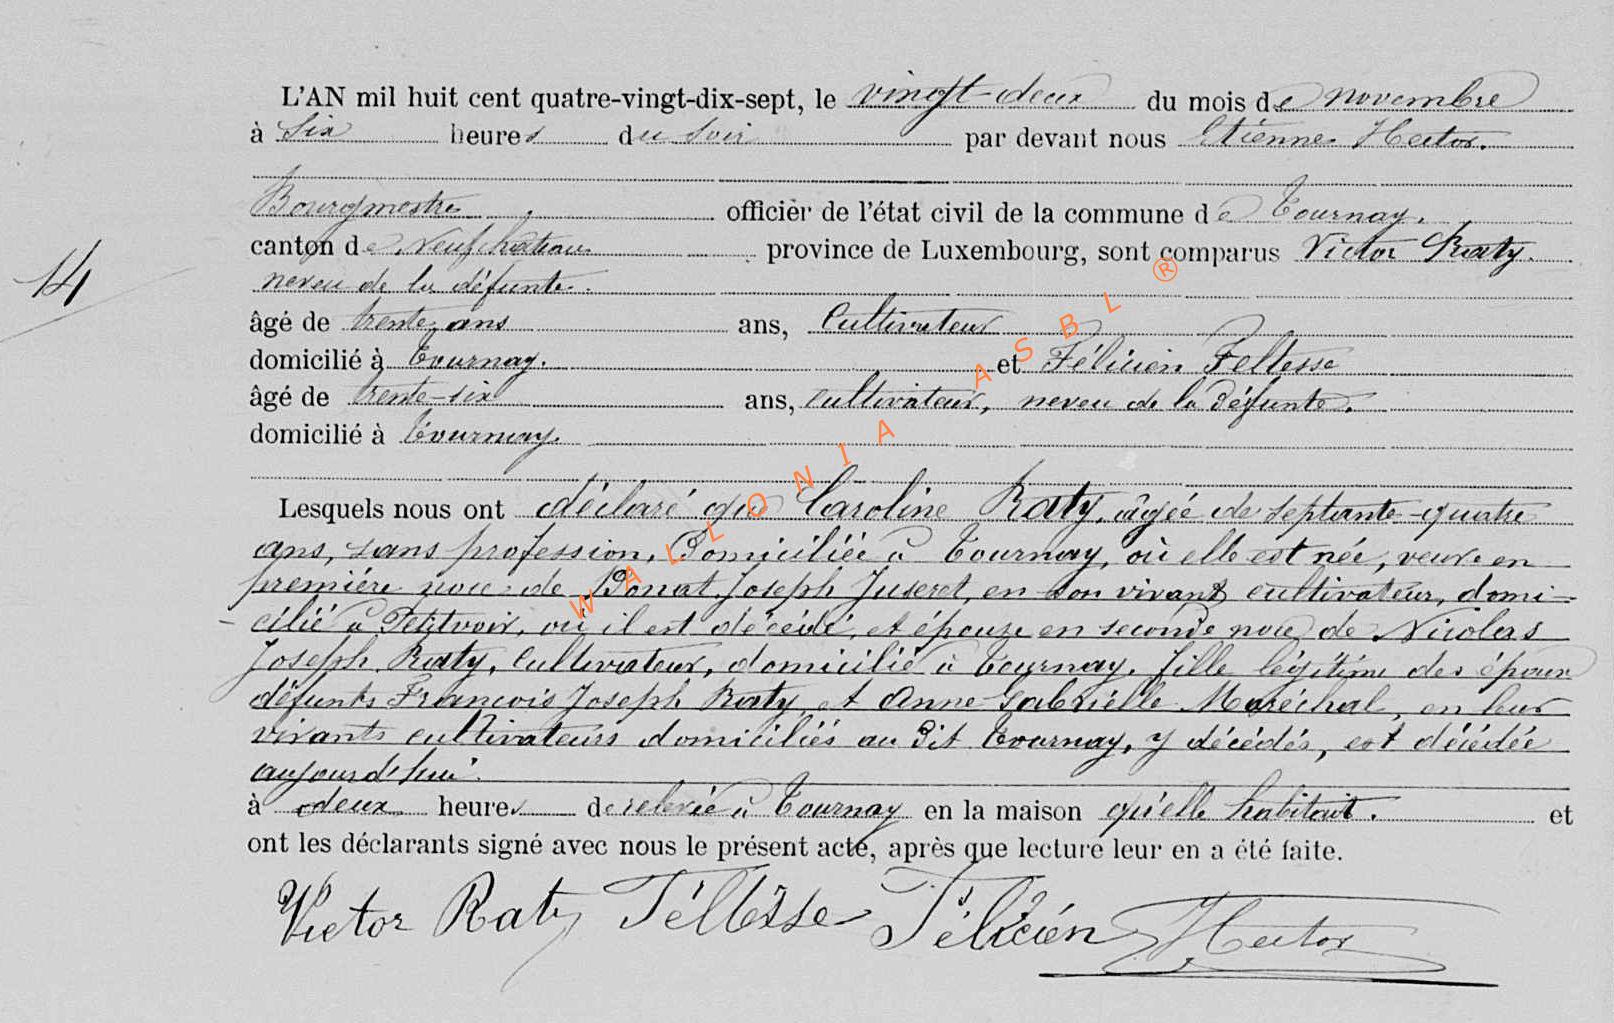 L'AN mil huit cent quatre-vingt-dix-sept, le vingt-deux du mois de novembre
à six heures du soir par devant nous Etienne Hector.
Bourgmestre officier de l'état civil de la commune de Tournay,
canton de Neufchâteau province de Luxembourg, sont comparus Victor Raty.
neveu de la défunte.
14
âgé de trente ans ans, Cultivateur
domicilié à Tournay. et Félicien Fellesse
âgé de trente-six ans, cultivateur, neveu de la défunte.
domicilié à Tournay.
Lesquels nous ont déclaré que Caroline Raty, âgée de septante-quatre
ans, sans profession, Domiciliée à Tournay, où elle est née, veuve en
première noce de Donat Joseph Juseret, en son vivant cultivateur, domi-
cilié à Petitvoir, où il est décédé, et épouse en seconde noce de Nicolas
Joseph Raty, cultivateur, domicilié à Tournay, fille légitime des époux
défunts François Joseph Raty et Anne Gabrielle Maréchal, en leur
vivants cultivateurs domiciliés au dit Tournay, y décédés, est décédée
aujourd'hui
à deux heures de relevée à Tournay en la maison qu'elle habitait. et
ont les déclarants signé avec nous le présent acte, après que lecture leur en a été faite.
Victor Raty Fellesse Félicien Hector
WALLONIA ASBL ®